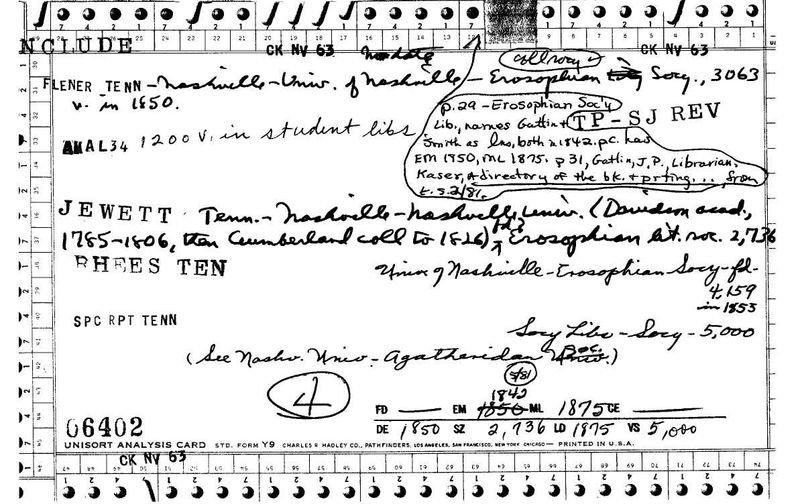 NCLUDE
CK NV 63
no date
all rocy
FLENER TENN - Nashville - Univ. of Nashville - Erosophian Socy., 3063
v. in 1850.
p. 29 - Erosophian Soc'y
Lib., names Gattin +
TP-SJ REV
Smith as lns, both in 1842. p.c. has
EM 1750, ML 1875. p 31, Gatlin, J. P., Librarian.
Kaser, A directory of the bk. + prting..., from
t.s. 2/81.
AMAL34 1200 v. in student libs
JEWETT Tenn. - Nashville - Nashville, Univ. (Davidson acad.,
1785-1806, then Cumberland coll to 1826) fd? Erosophian lit. soc. 2,736
RHEES TEN
Univ of Nashville - Erosophian Socy - fd -
4,159
in 1853
SPC RPT TENN
Socy Libs - Socy - 5,000
(See Nashv. Univ. - Agatheridan Soc.)
5/81
4
1842
FD — EM 1850 ML 1875 CE —
DE 1850 SZ 2,736 LD 1875 VS 5,000
06402
UNISORT ANALYSIS CARD STD. FORM Y9 CHARLES R HADLEY CO., PATHFINDERS, LOS ANGELES, SAN FRANCISCO, NEW YORK CHICAGO — PRINTED IN U.S.A.
CK NV 63